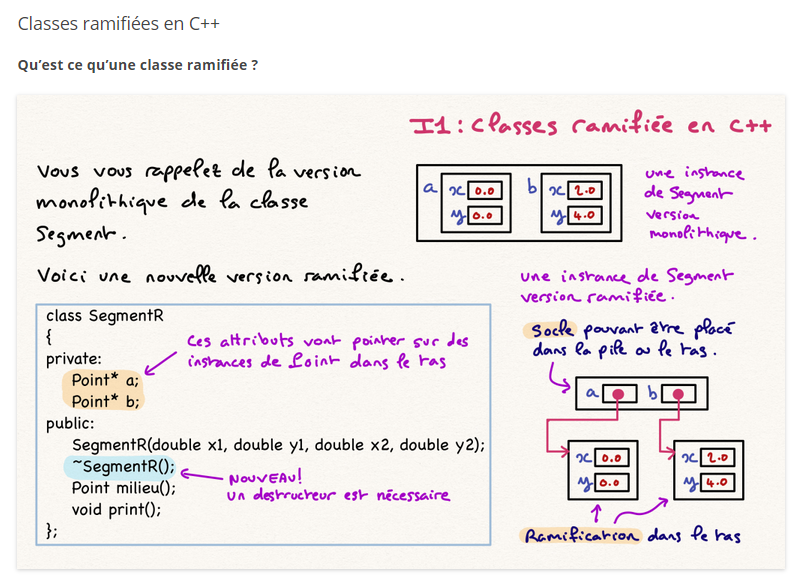 Classes ramifiées en C++
Qu’est ce qu’une classe ramifiée ?
I1 : Classes ramifiée en C++
Vous vous rappelez de la version
monolithique de la classe
Segment.
a x 0.0 b x 2.0
y 0.0 y 4.0
une instance
de Segment
version
monolithique.
Voici une nouvelle version ramifiée.
une instance de Segment
version ramifiée.
class SegmentR
{
private:
Point* a;
Point* b;
public:
SegmentR(double x1, double y1, double x2, double y2);
~SegmentR();
Point milieu();
void print();
};
Ces attributs vont pointer sur des
instances de Point dans le tas
NOUVEAU!
Un destructeur est nécessaire
Socle pouvant être placé
dans la pile ou le tas.
a b
x 0.0 x 2.0
y 0.0 y 4.0
Ramification dans le tas